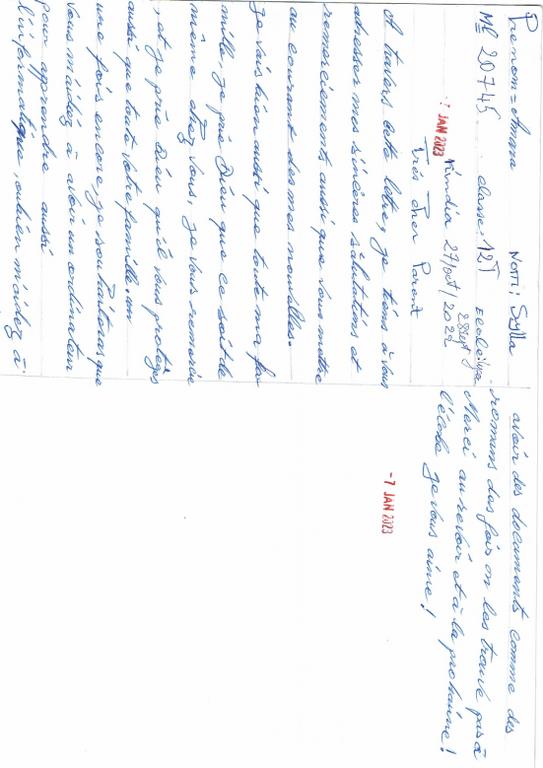 Prenom = Amina Nom: Sylla
Mle 20745 classe: 12T Ecole: liya
28 sept
-7 JAN 2023 Kindia 27/oct/2022
Très cher Parent
A travers cette lettre, je tiens à vous
adresser mes sincères salutations et
remerciements aussi que vous mettre
au courant des mes nouvelles.
je vais bien aussi que toute ma fa-
mille, je prie Dieu que ce soit de
même chez vous, je vous remercie
, et je prie Dieu qu'il vous protège
aussi que toute votre famille, un
une fois encore, je souhaiterais que
vous m'aidez à avoir un ordinateur
pour apprendre aussi
l'informatique, oubien m'aidez à
avoir des documents comme des
romans des fois on les trouve pas à
Merci aurevoir et à la prochaine!
l'école je vous aime!
-7 JAN 2023